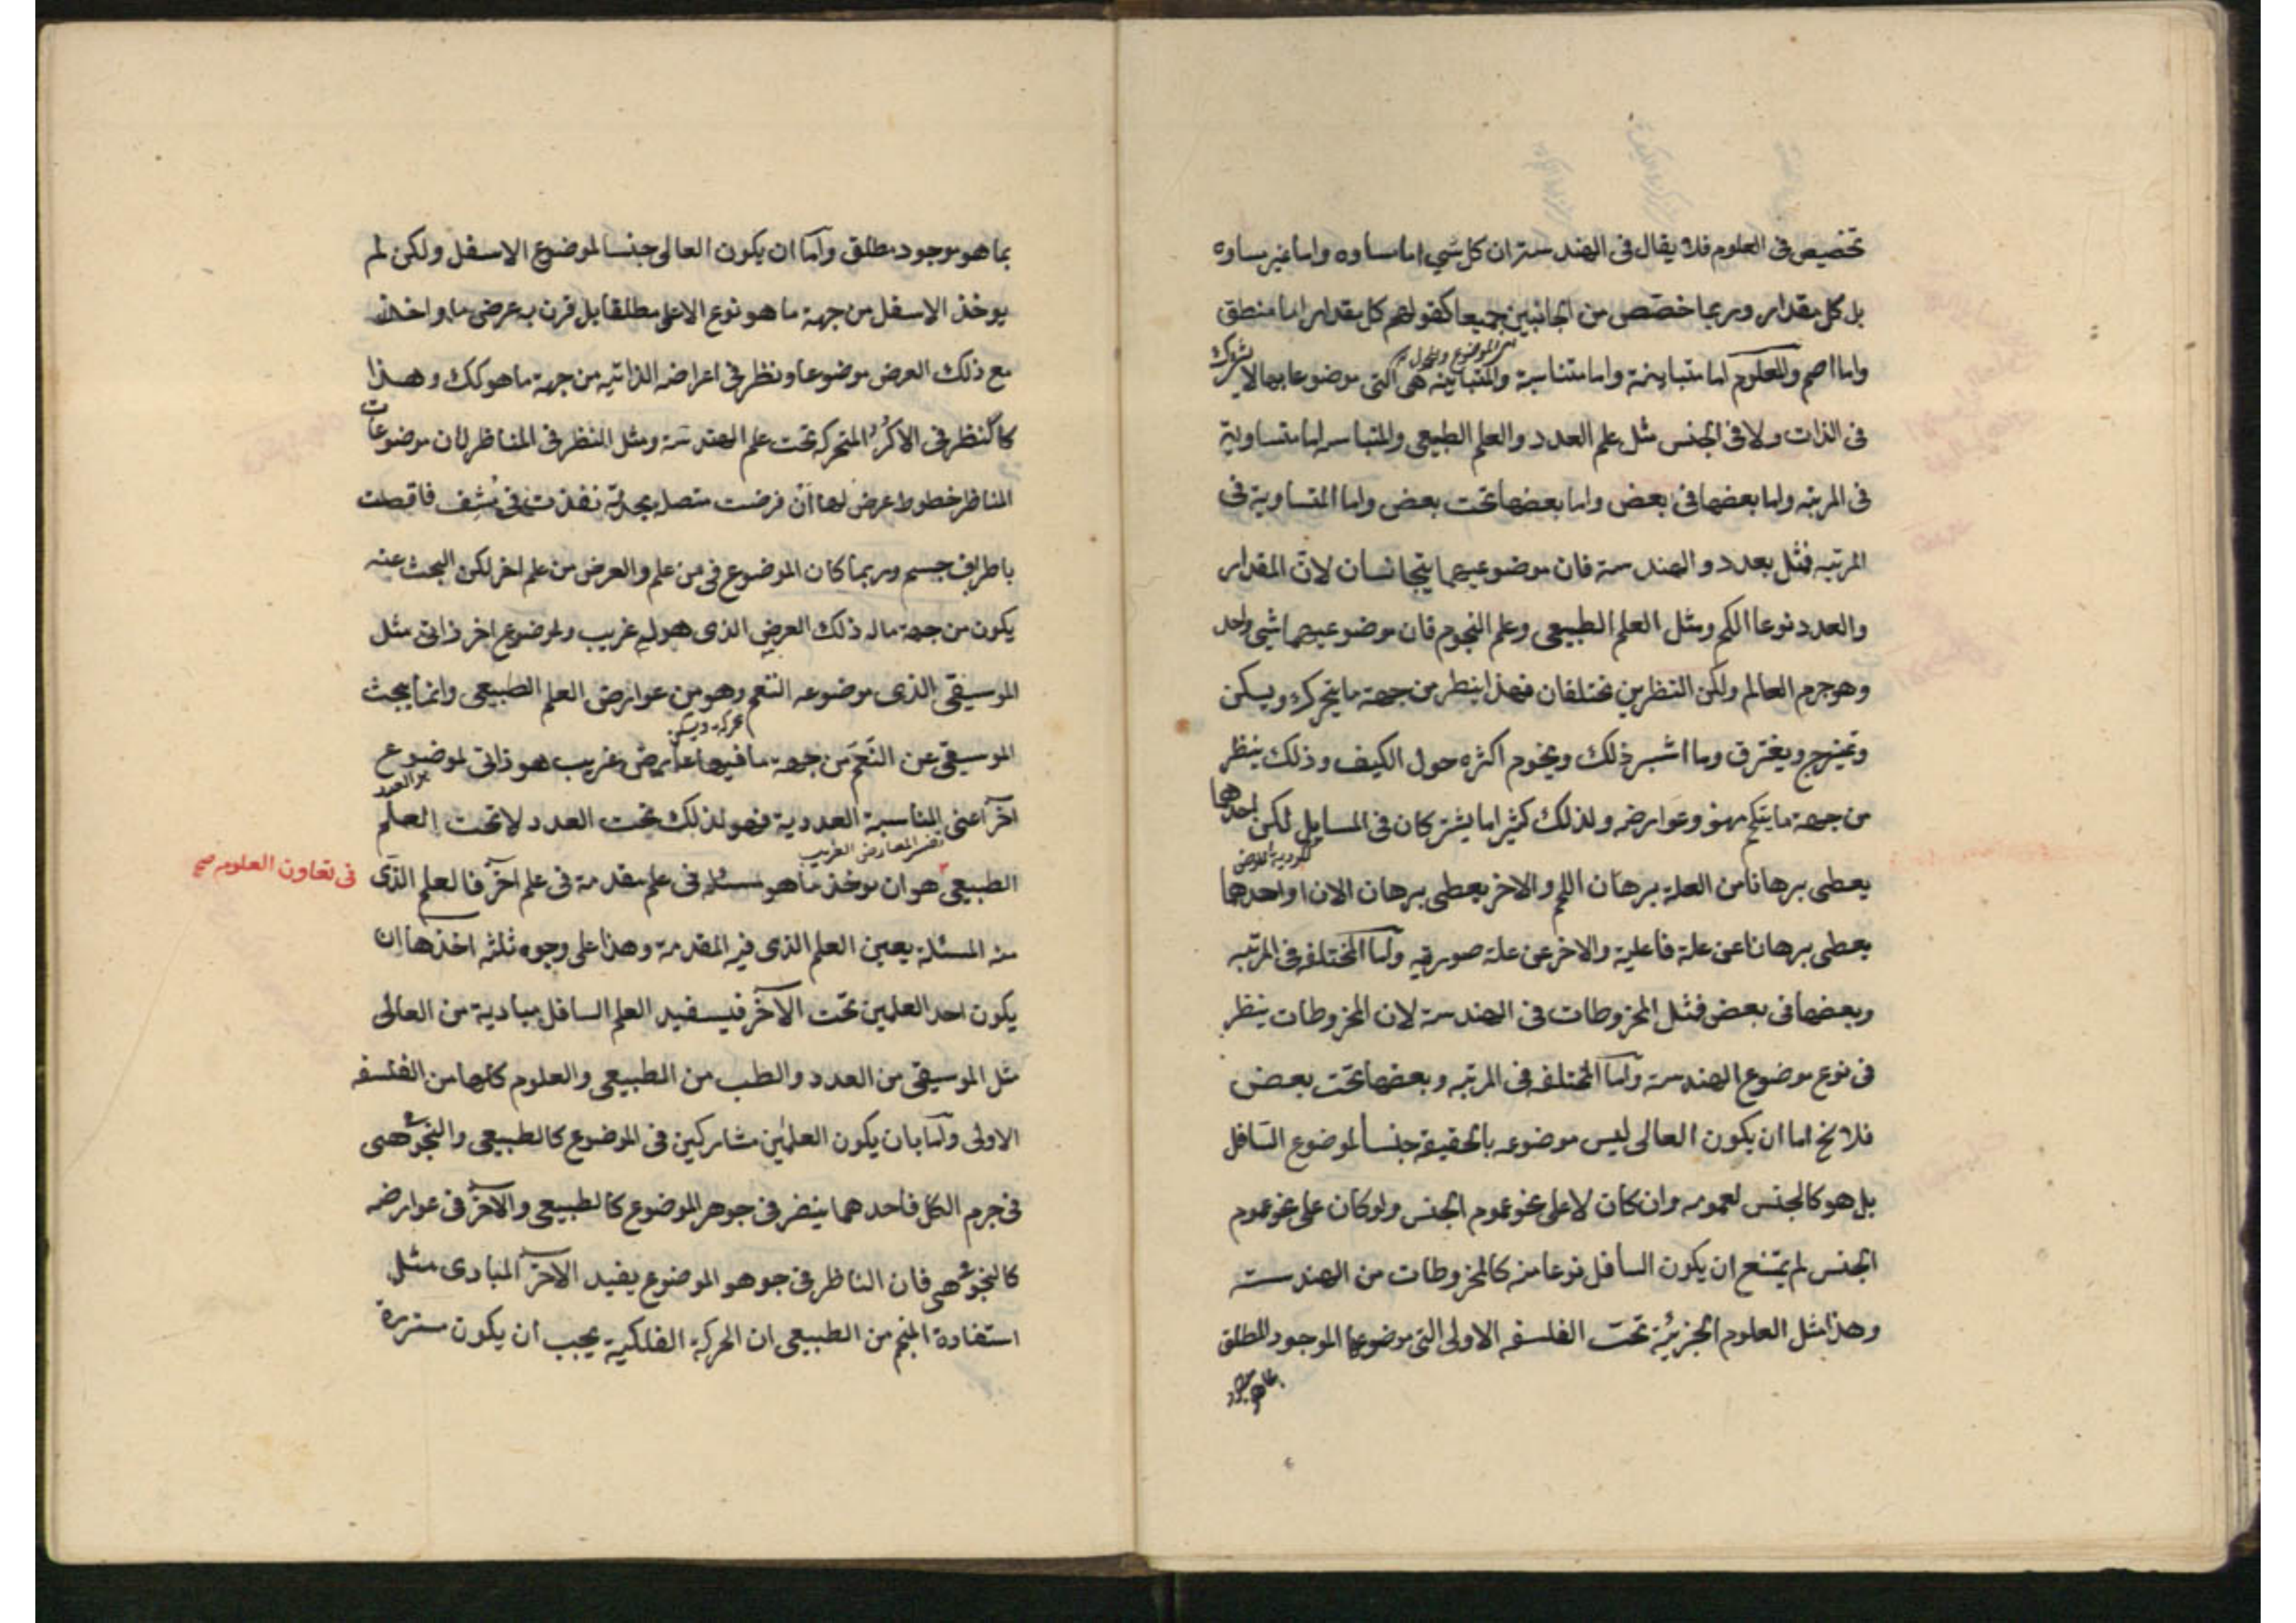 تخصيص فى العلوم فلا يقال فى الهندسة ان كل شى اما مساوه واما غير مساوه
بل كل مقدار وربما خصص من الجانبين جميعا كقولهم كل مقدار اما منطق
واما اصم والعلوم اما متباينة واما متناسبة والمتباينة هى التى موضوعاتها لا يشترك
فى الذات ولا فى الجنس مثل علم العدد والعلم الطبيعى والمتناسبه اما متساوية
فى المرتبه واما بعضها فى بعض واما بعضها تحت بعض واما المتساوية فى
المرتبه فمثل بعدد والهندسة فان موضوعيهما يتجانسان لان المقدار
والعدد نوعا الكم ومثل العلم الطبيعى وعلم النجوم فان موضوعيهما شى واحد
وهو جرم العالم ولكن النظرين مختلفان فهذا ينظر من جهة ما يتحرك ويسكن
ويمتزج ويفترق وما اشبه ذلك ويحوم اكثره حول الكيف وذلك ينظر
من جهة ما يتكم هو وعوارضه ولذلك كثيرا ما يشتركان فى المسايل لكن احدهما
يعطى برهانا من العلة برهان اللم والاخر يعطى برهان الان او احدهما
يعطى برهانا عن علة فاعلية والاخر عن علة صوريه واما المختلفه فى المرتبه
وبعضها فى بعض فمثل المخروطات فى الهندسة لان المخروطات ينظر
فى نوع موضوع الهندسة واما المختلفه فى المرتبه وبعضها تحت بعض
فلا يخ اما ان يكون العالى ليس موضوعه بالحقيقة جنسا لموضوع السافل
بل هو كالجنس لعمومه وان كان لا على نحو عموم الجنس ولو كان على نحو عموم
الجنس لم يمتنع ان يكون السافل نوعا منه كالمخروطات من الهندسة
وهذا مثل العلوم الجزئية تحت الفلسفه الاولى التى موضوعها الموجود المطلق
بما هو موجود
بما هو موجود مطلق واما ان يكون العالى جنسا لموضوع الاسفل ولكن لم
يوخذ الاسفل من جهة ما هو نوع الاعلى مطلقا بل قرن به عرض ما واخذ
مع ذلك العرض موضوعا ونظر فى اعراضه الذاتيه من جهة ما هو كك وهذا
كالنظر فى الاكر المتحركه تحت علم الهندسة ومثل النظر فى المناظر لان موضوعات
المناظر خطوط عرض لها ان فرضت متصلة بحدقة نفذت فى مُشِف فاتصلت
باطراف جسم وربما كان الموضوع فى من علم والعرض من علم اخر لكن البحث عنه
يكون من جهة ماله ذلك العرض الذى هو له غريب ولموضوع اخر ذاتى مثل
الموسيقى الذى موضوعه النغم وهو من عوارض العلم الطبيعى وانما يبحث
الموسيقى عن النَغَم من جهة ما فيها عارض غريب هو ذاتى لموضوع
آخر اعنى المناسبة العددية فهو لذلك تحت العدد لا تحت العلم
الطبيعى هو ان يوخذ ما هو مسئله فى علم مقدمة فى علم اخر فالعلم الذى
فى تعاون العلوم صح
منه المسئلة يعين العلم الذى فيه المقدمة وهذا على وجوه ثلثه احدها ان
يكون احد العلمين تحت الآخر فيستفيد العلم السافل مبادية من العالى
مثل الموسيقى من العدد والطب من الطبيعى والعلوم كلها من الفلسفه
الاولى واما بان يكون العلمين مشاركين فى الموضوع كالطبيعى والنجومى
فى جرم الكل فاحدهما ينضر فى جوهر الموضوع كالطبيعى والآخر فى عوارضه
كالنجومى فان الناظر فى جوهو الموضوع يفيد الآخر المبادى مثل
استفادة المنجم من الطبيعى ان الحركة الفلكية يجب ان يكون مستديرة